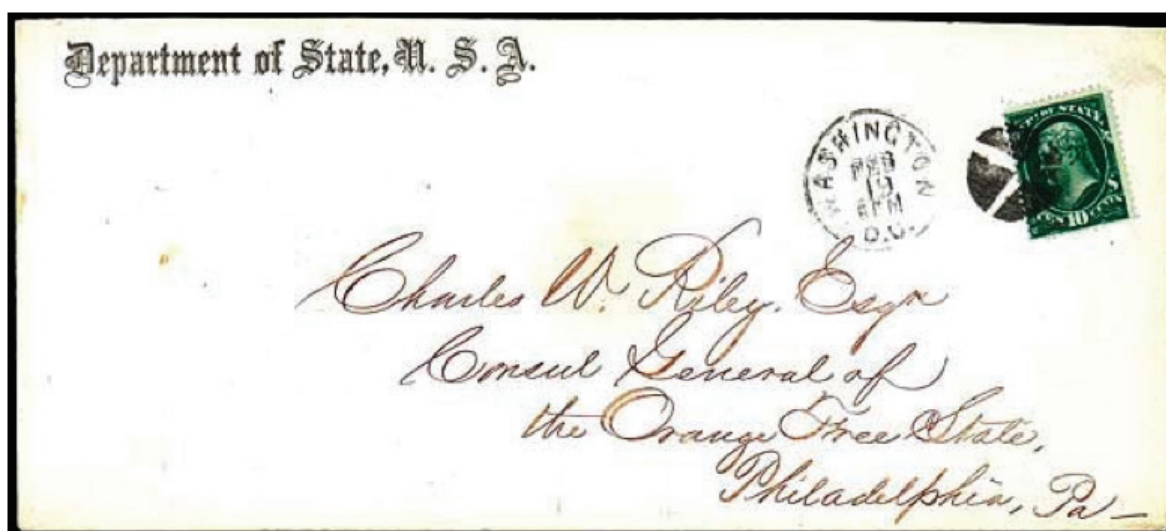 Department of State, U. S. A.
WASHINGTON
FEB
19
D.C.
OF STATE
10
Charles W. Riley, Esqr
Consul General of
the Orange Free State,
Philadelphia, Pa